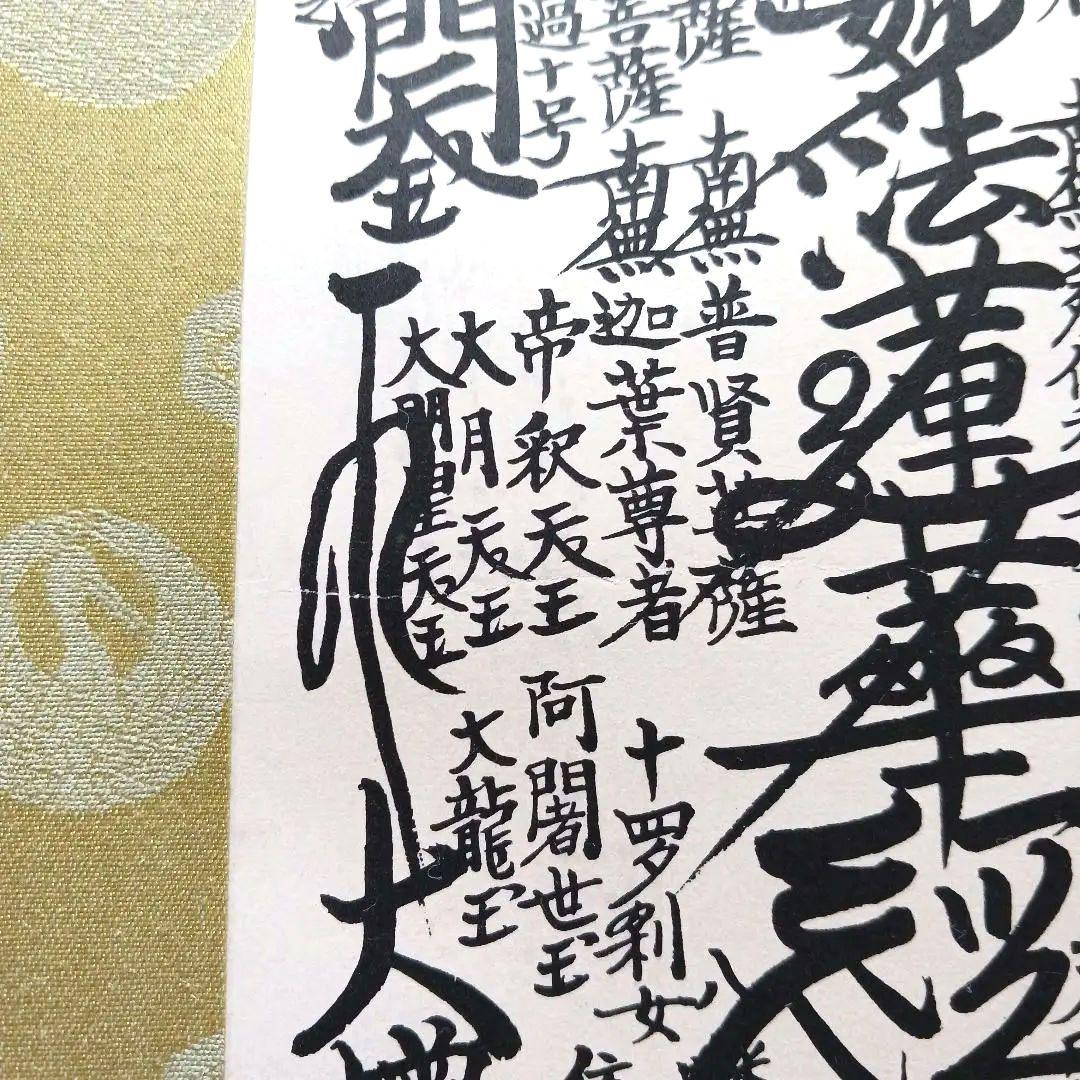 妙法蓮華経
薩 南無普賢菩薩
菩薩 南無迦葉尊者 十罗刹女
過十号 帝釈天王 阿闍世王
大月天王 大龍王
大明星天王
門天王 大